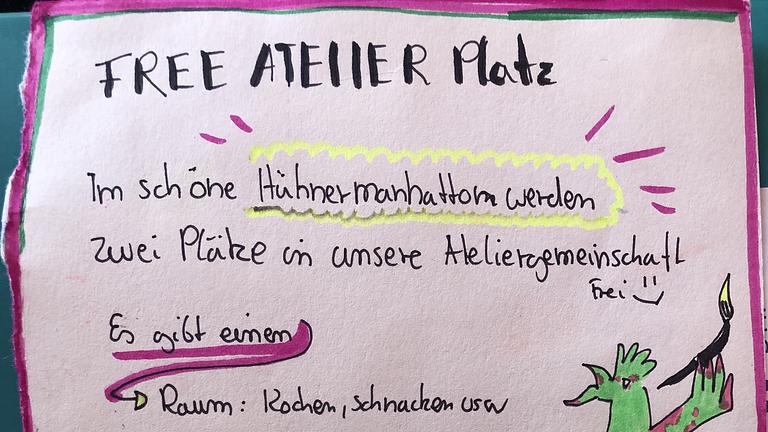 FREE ATELIER Platz
Im schöne Hühnermanhattom werden
zwei Plätze in unsere Ateliergemeinschaft
Frei :)
Es gibt einen
Raum: Kochen, schnacken usw